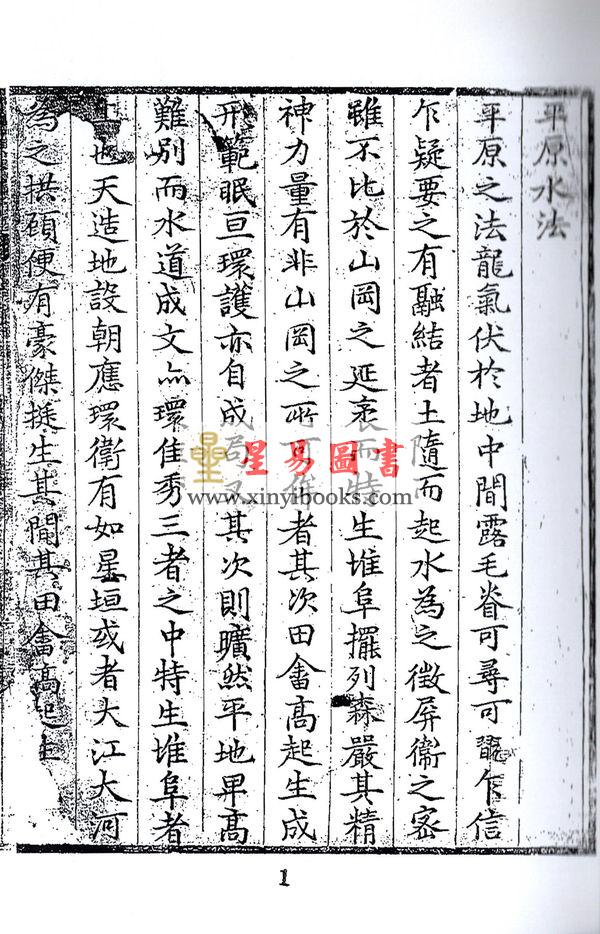 平原水法
平原之法龍氣伏於地中間露毛脊可尋可認乍信
乍疑要之有融結者土隨而起水為之徵屏衛之密
雖不比於山岡之延袤而特生堆阜擺列森嚴其精
神力量有非山岡之所可 者其次田畬高起生成
形範眠亘環護亦自成 其次則曠然平地卑高
難別而水道成文 環佳秀三者之中特生堆阜者
也天造地設朝應環衛有如星垣或者大江大河
為之拱顧便有豪傑挺生其間其田畬高起
星易圖書
www.xinyibooks.com
1